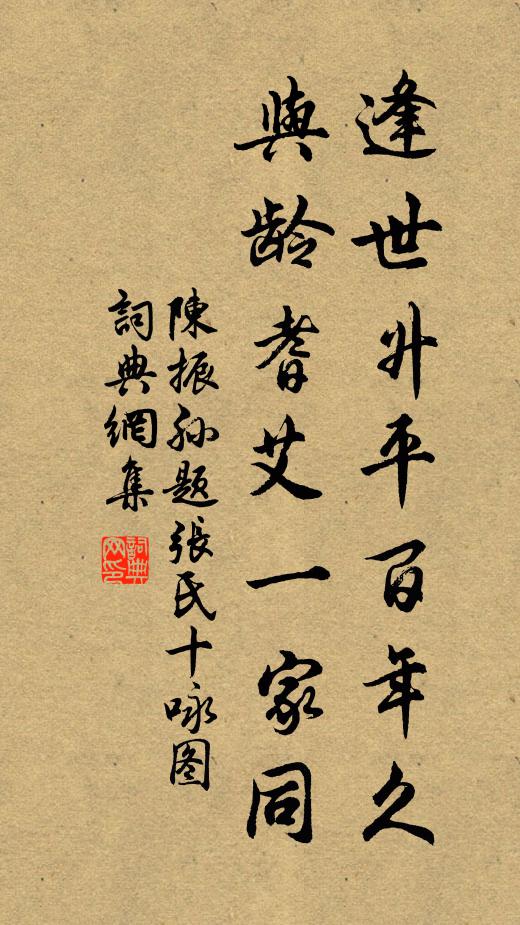 逢世升平百年久
與龄耆艾一家同
陳振孫题張氏十咏图
詞典網集
詞典网印